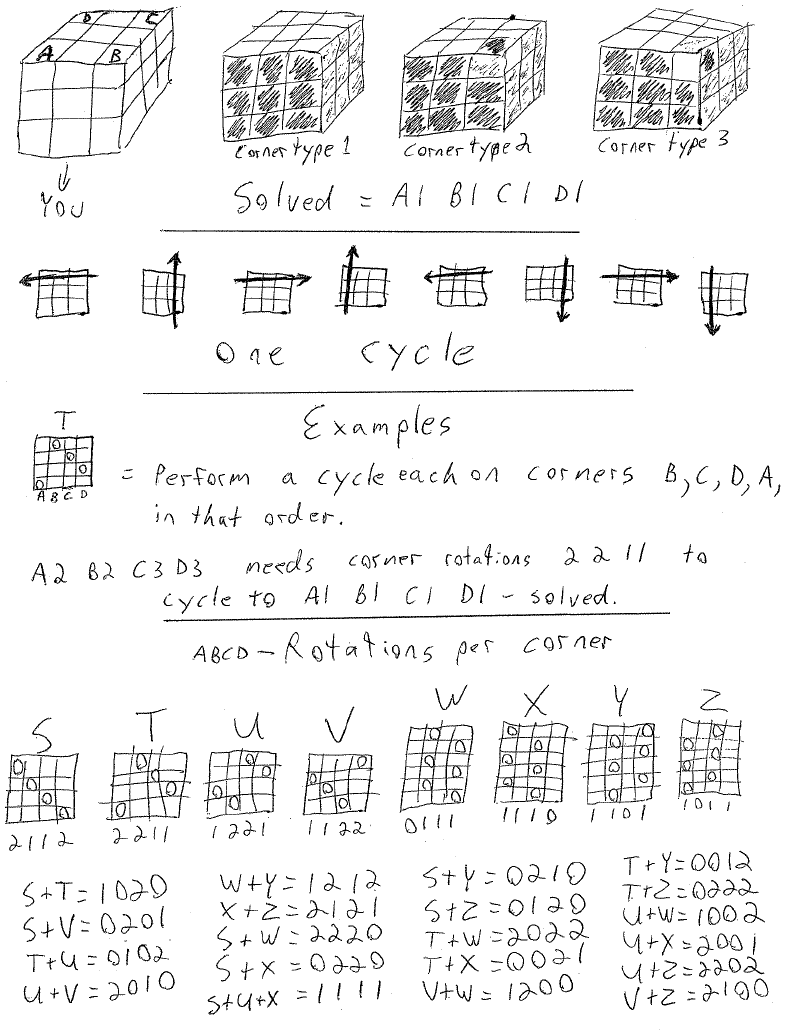 D C
A B
Corner type 1 Corner type 2 Corner type 3
YOU
Solved = A1 B1 C1 D1
One cycle
Examples
T
A B C D
= Perform a cycle each on corners B, C, D, A,
in that order.
A2 B2 C3 D3 needs corner rotations 2 2 1 1 to
cycle to A1 B1 C1 D1 - solved.
ABCD - Rotations per corner
S T U V W X Y Z
2112 2211 1221 1122 0111 1110 1101 1011
S+T=1020
S+V=0201
T+U=0102
U+V=2010
W+Y=1212
X+Z=2121
S+W=2220
S+X=0220
S+U+X=1111
S+Y=0210
S+Z=0120
T+W=2022
T+X=0021
V+W=1200
T+Y=0012
T+Z=0222
U+W=1002
U+X=2001
U+Z=2202
V+Z=2100